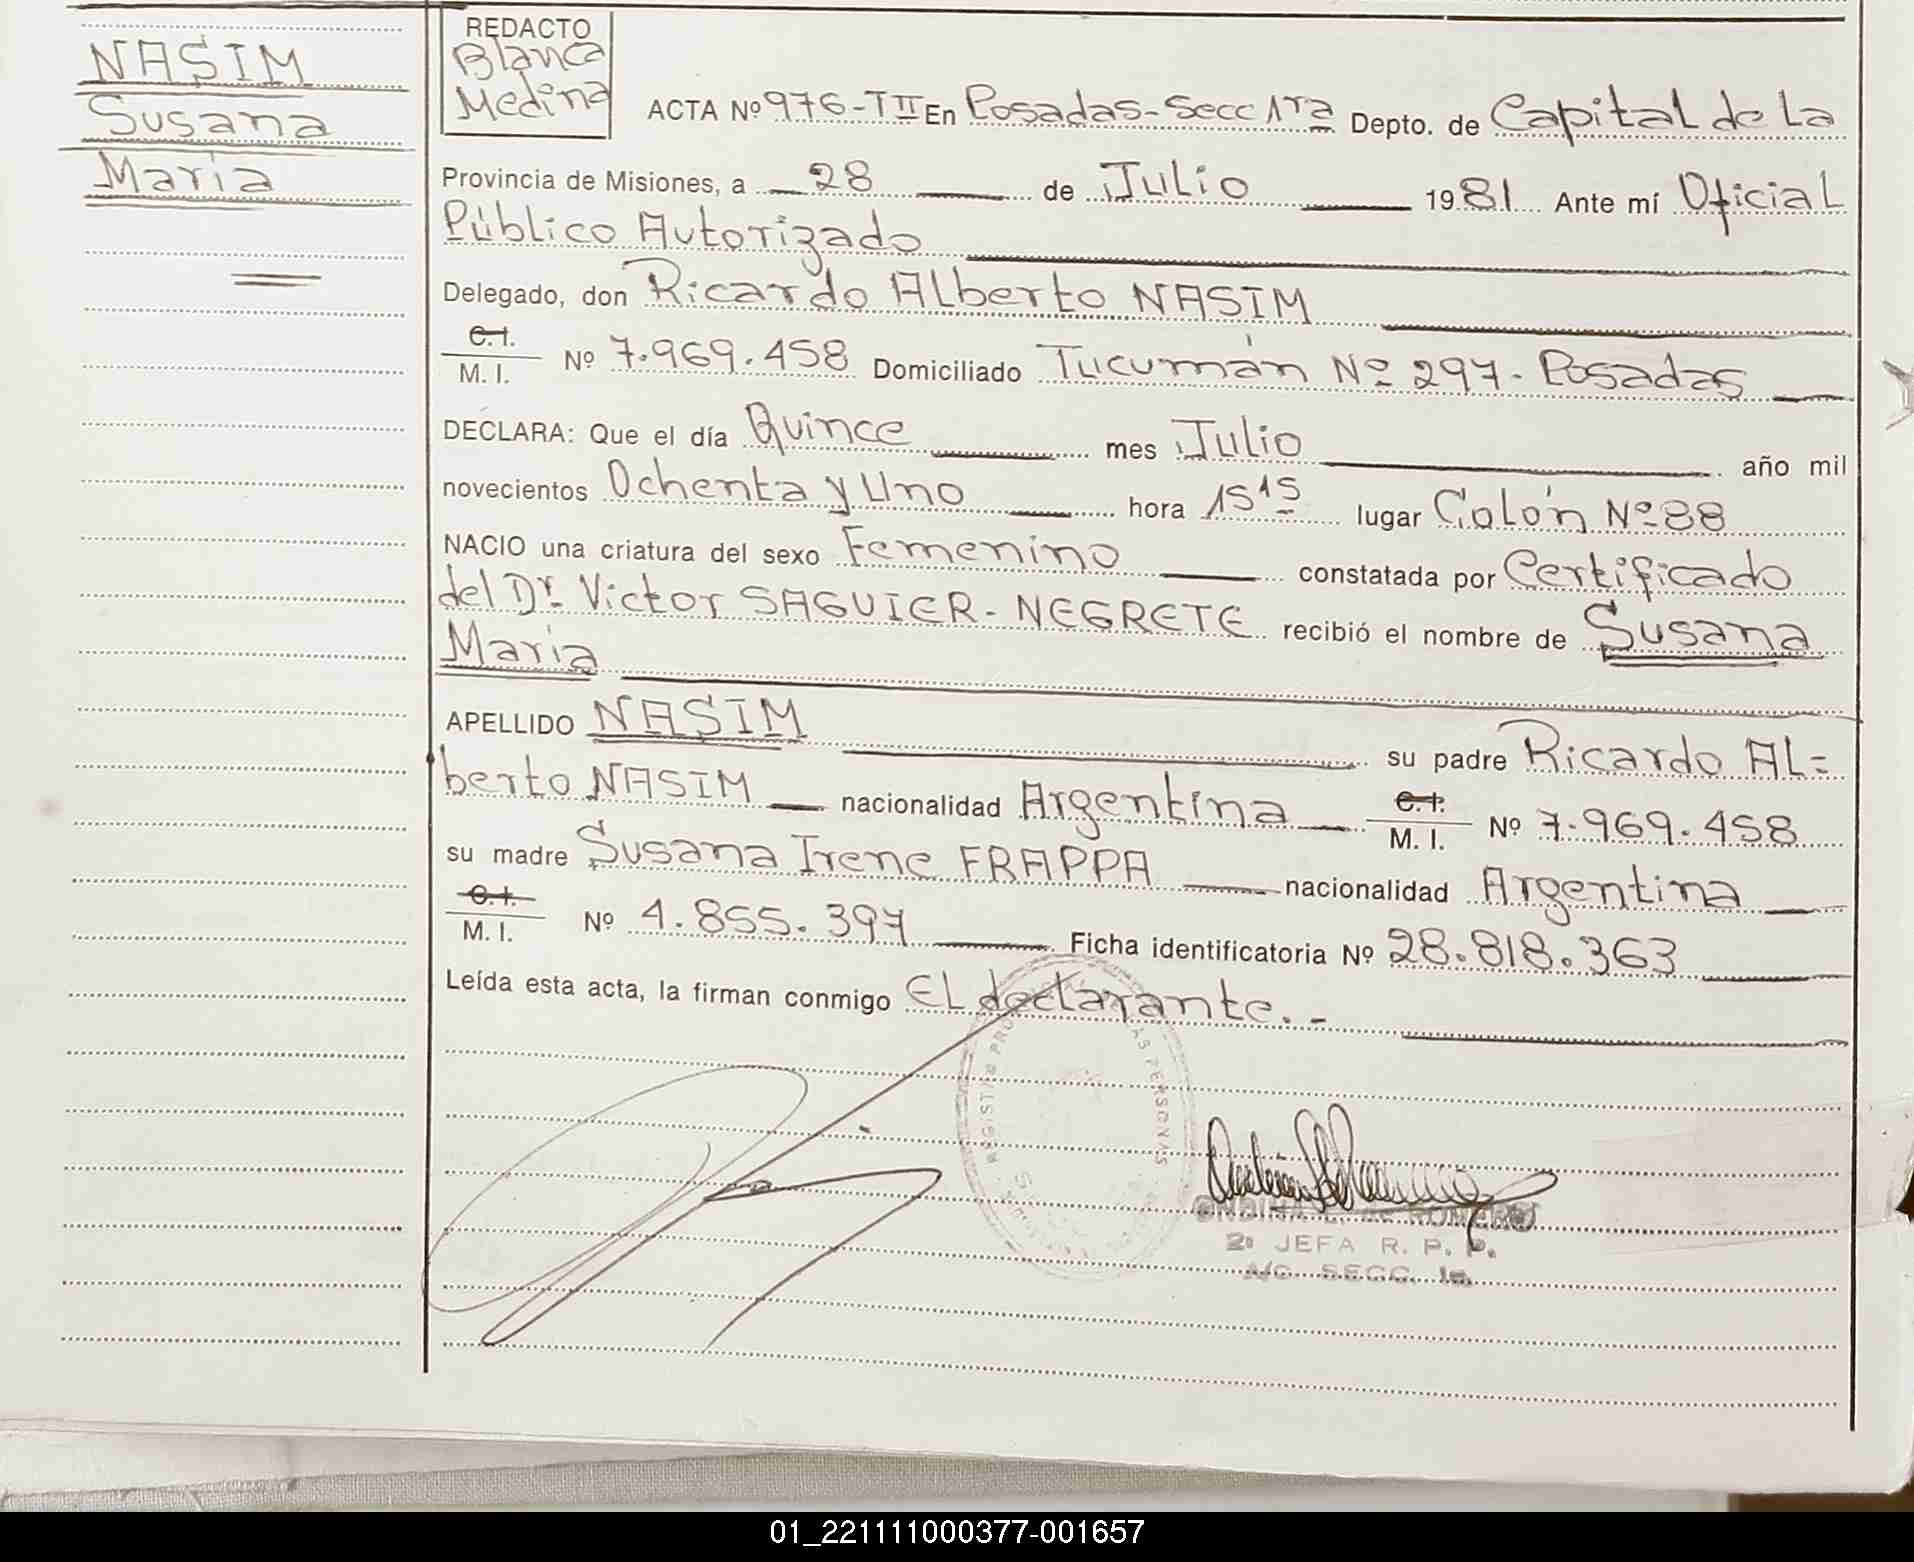 NASIM
Susana
Maria
REDACTO
Blanca
Medina
ACTA Nº 976-TII En Posadas-Secc 1ra Depto. de Capital de La
Provincia de Misiones, a 28 de Julio 1981 Ante mí Oficial
Público Autorizado
Delegado, don Ricardo Alberto NASIM
C.I.
M. I. Nº 7.969.458 Domiciliado Tucumán Nº 297- Posadas
DECLARA: Que el día Quince mes Julio año mil
novecientos Ochenta y Uno hora 15 15 lugar Colón Nº 88
NACIO una criatura del sexo Femenino constatada por Certificado
del Dr. Victor SAGUIER-NEGRETE recibió el nombre de Susana
Maria
APELLIDO NASIM su padre Ricardo AL=
berto NASIM nacionalidad Argentina C.I. M. I. Nº 7.969.458
su madre Susana Irene FRAPPA nacionalidad Argentina
C.I.
M. I. Nº 4.855.397 Ficha identificatoria Nº 28.818.363
Leída esta acta, la firman conmigo EL declarante.-
ROMERO
2ª JEFA R. P. P.
A/C. SECC. 1a.
01_221111000377-001657